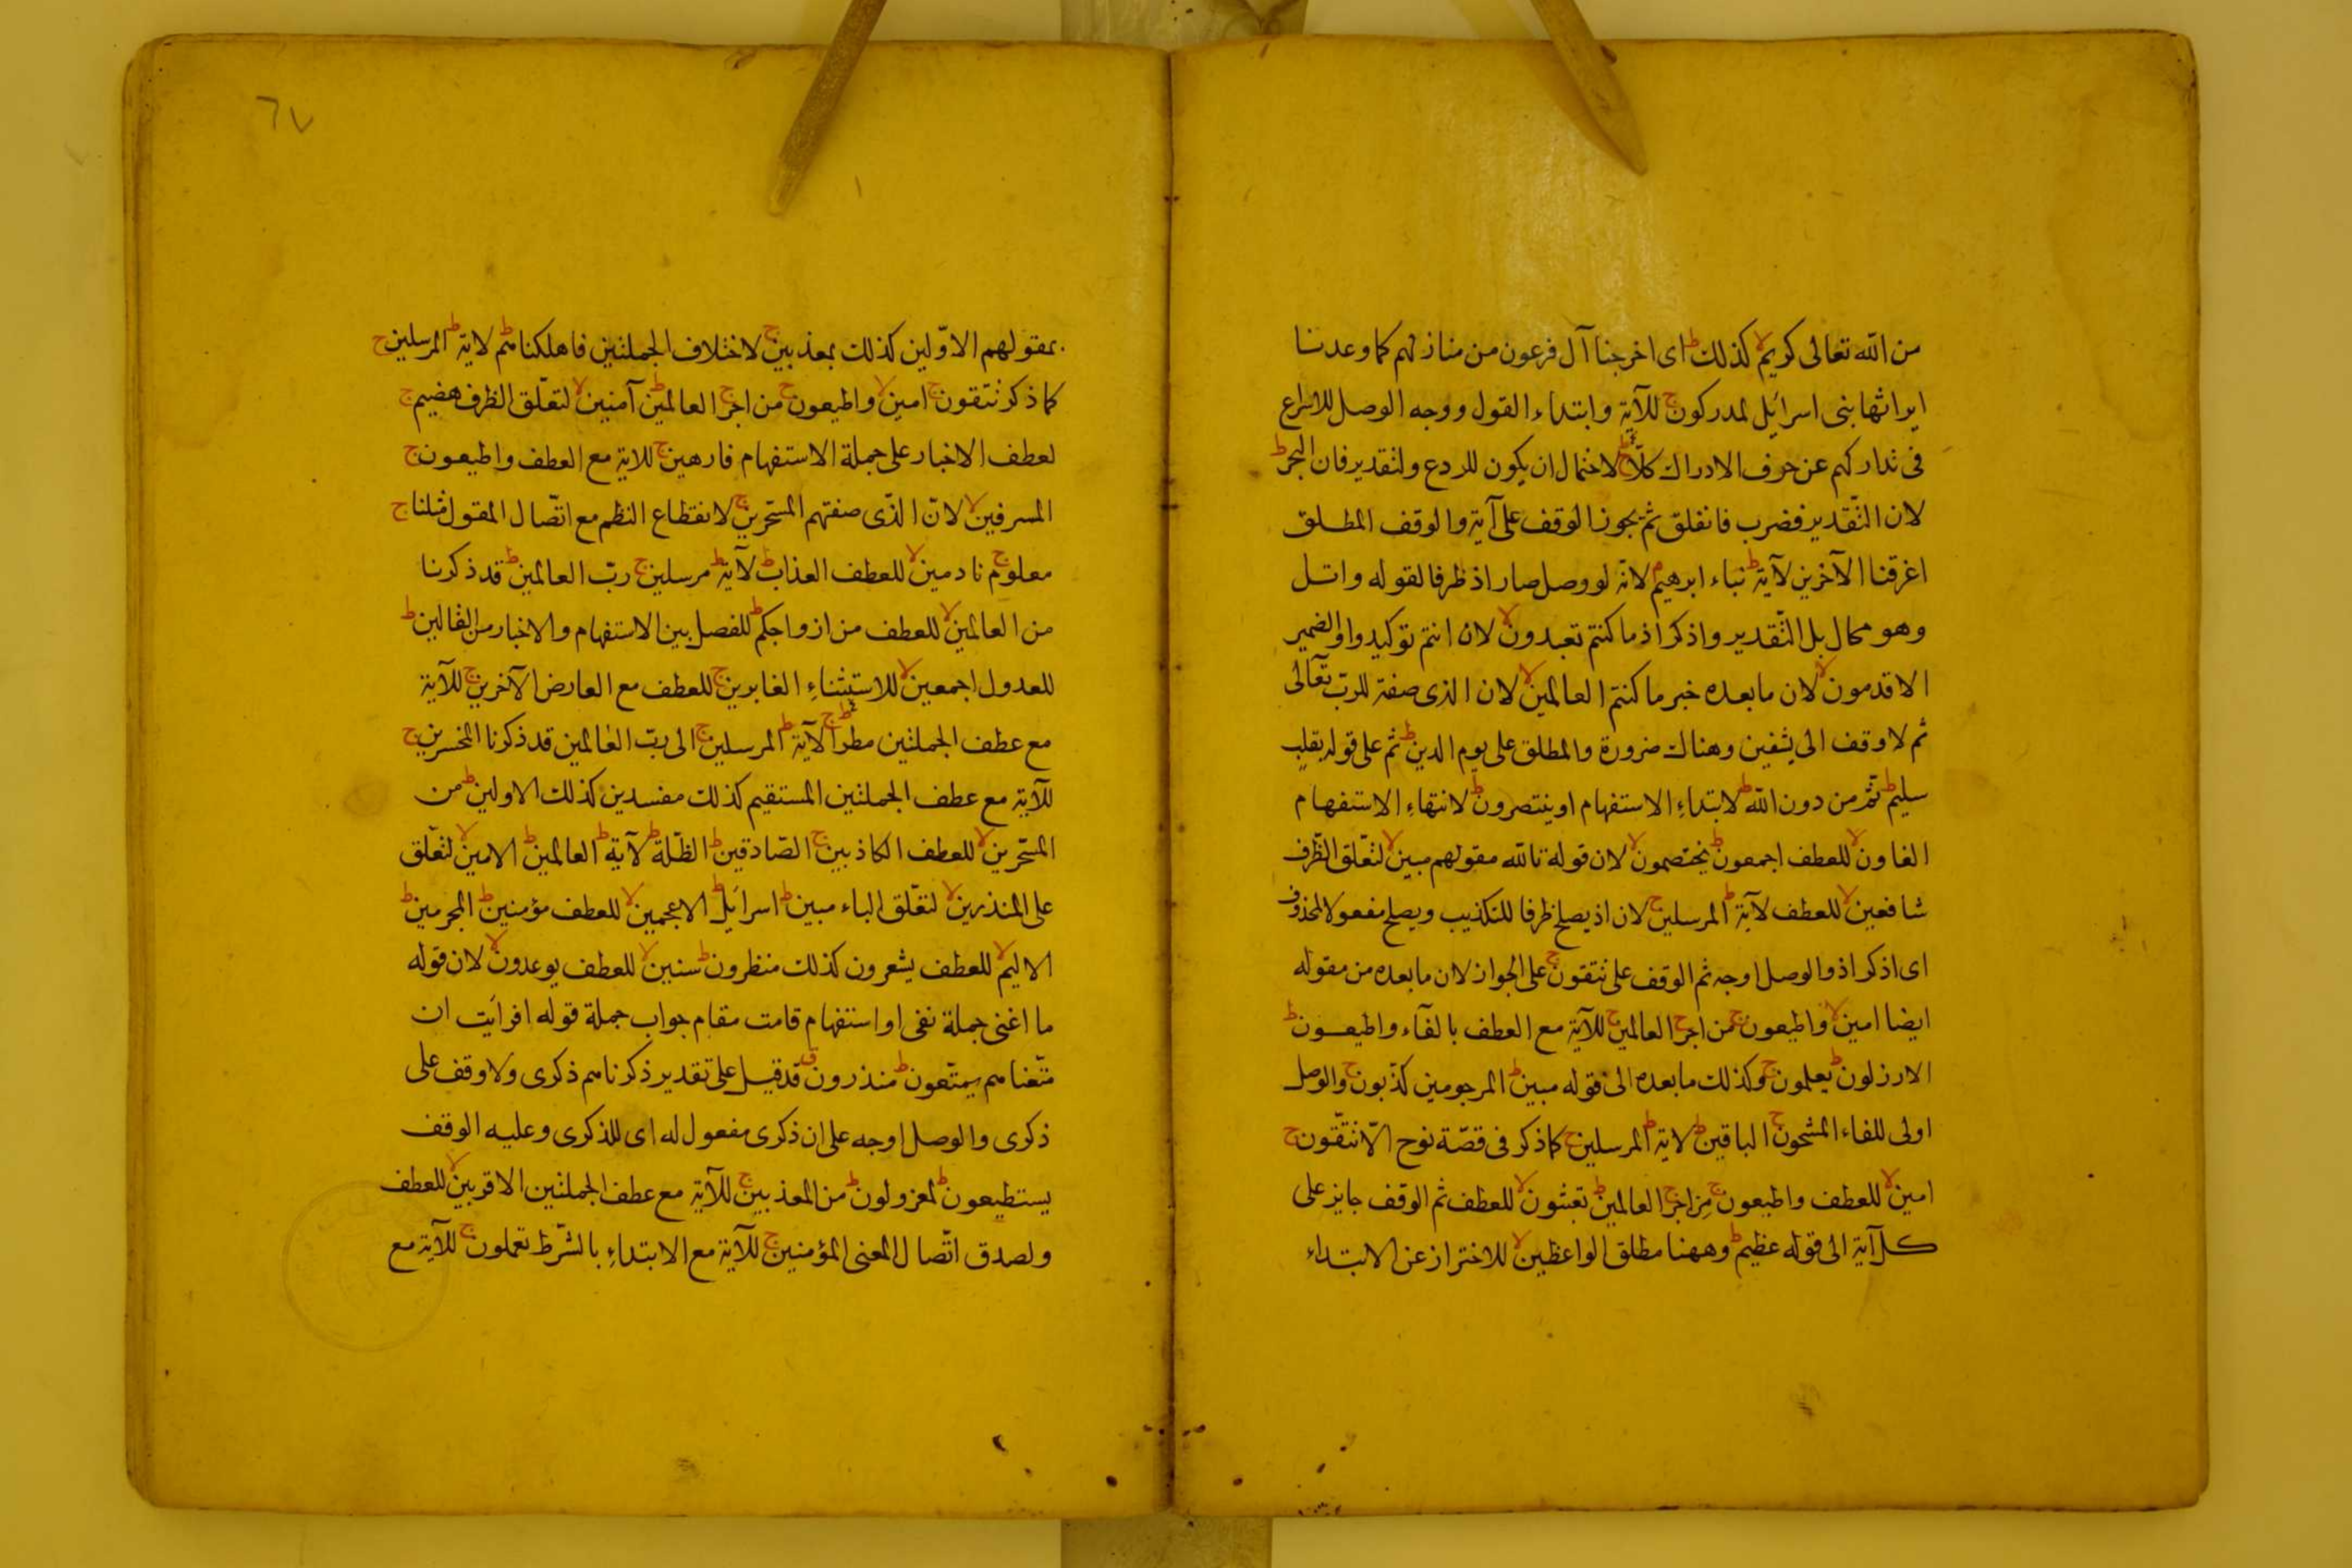 من الله تعالى كريم لا كذلك ط اى اخرجنا آل فرعون من منازلهم كما وعدنا
ايراثها بنى اسرائيل لمدركون ج للآية وابتداء القول ووجه الوصل للاسراع
فى تداركهم عن خوف الادراك كلا ج لاحتمال ان يكون للردع ولتقدير فان البحر ط
لان التقدير فضرب فانفلق ثم يجوز الوقف على آية والوقف المطلق
اغرقنا الآخرين لآية ط نباء ابرهيم م لانه لو وصل صار اذ ظرفا لقوله واتل
وهو محال بل التقدير واذكر اذ ما كنتم تعبدون لا لان انتم توكيد واو الضمير
الاقدمون لا لان ما بعده خبر ما كنتم العالمين لا لان الذى صفة للرب تعالى
ثم لا وقف الى يشفين وهناك ضرورة والمطلق على يوم الدين ط ثم على قوله بقلب
سليم ط ثم من دون الله ط لابتداء الاستفهام او ينتصرون ط لانتهاء الاستفهام
الغاون لا للعطف اجمعون ط يختصمون لا لان قوله تالله مقولهم مبين لا لتعلق الظرف
شافعين لا للعطف لآية ط المرسلين ج لان اذ يصلح ظرفا للتكذيب ويصلح مفعولا لمحذوف
اى اذكر اذ والوصل اوجه ثم الوقف على تتقون ج على الجواز لان ما بعده من مقوله
ايضا امين لا واطيعون ج من اجر ج العالمين ج للآية مع العطف بالفاء واطيعون ط
الارذلون ط يعلمون ج وكذلك ما بعده الى قوله مبين ط المرجومين كذبون ج والوصل
اولى للفاء المشحون ج الباقين ط لاية ط المرسلين ج كما ذكر فى قصة نوح الا تتقون ج
امين لا للعطف واطيعون ج من اجر ج العالمين ط تعبثون لا للعطف ثم الوقف جايز على
كل آية الى قوله عظيم ط وههنا مطلق الواعظين لا للاحتراز عن الابتداء
٦٧
بمقولهم الاولين كذلك بمعذبين ج لاختلاف الجملتين فاهلكناهم ط لاية ط المرسلين ج
كما ذكر تتقون ج امين لا واطيعون ج من اجر ج العالمين ط آمنين لا لتعلق الظرف هضيم ج
لعطف الاخبار على جملة الاستفهام فارهين ج للاية مع العطف واطيعون ج
المسرفين لا لان الذى صفتهم المسحرين ج لانقطاع النظم مع اتصال المقول مثلنا ج
معلوم ج نادمين لا للعطف العذاب ط لآية ط مرسلين ج رب العالمين ط قد ذكرنا
من العالمين لا للعطف من ازواجكم ط للفصل بين الاستفهام والاخبار من القالين ط
للعدول اجمعين لا للاستثناء الغابرين ج للعطف مع العارض الآخرين ج للآية
مع عطف الجملتين مطرا ج لآية ط المرسلين ج الى رب العالمين قد ذكرنا المخسرين ج
للآية مع عطف الجملتين المستقيم كذلك مفسدين كذلك الاولين ط من
المسحرين لا للعطف الكاذبين ج الصادقين ط الظلة ط لآية ط العالمين ط الامين لا لتعلق
على المنذرين لا لتعلق الباء مبين ط اسرائيل ط الاعجمين لا للعطف مؤمنين ط المجرمين ط
الاليم لا للعطف يشعرون كذلك منظرون ط سنين لا للعطف يوعدون لا لان قوله
ما اغنى جملة نفى او استفهام قامت مقام جواب جملة قوله افرايت ان
متعناهم يمتعون ط منذرون ق قد قيل على تقدير ذكرناهم ذكرى ولا وقف على
ذكرى والوصل اوجه على ان ذكرى مفعول له اى للذكرى وعليه الوقف
يستطيعون ط لمعزولون ط من المعذبين ج للآية مع عطف الجملتين الاقربين لا للعطف
ولصدق اتصال المعنى المؤمنين ج للآية مع الابتداء بالشرط تعملون ج للآية مع